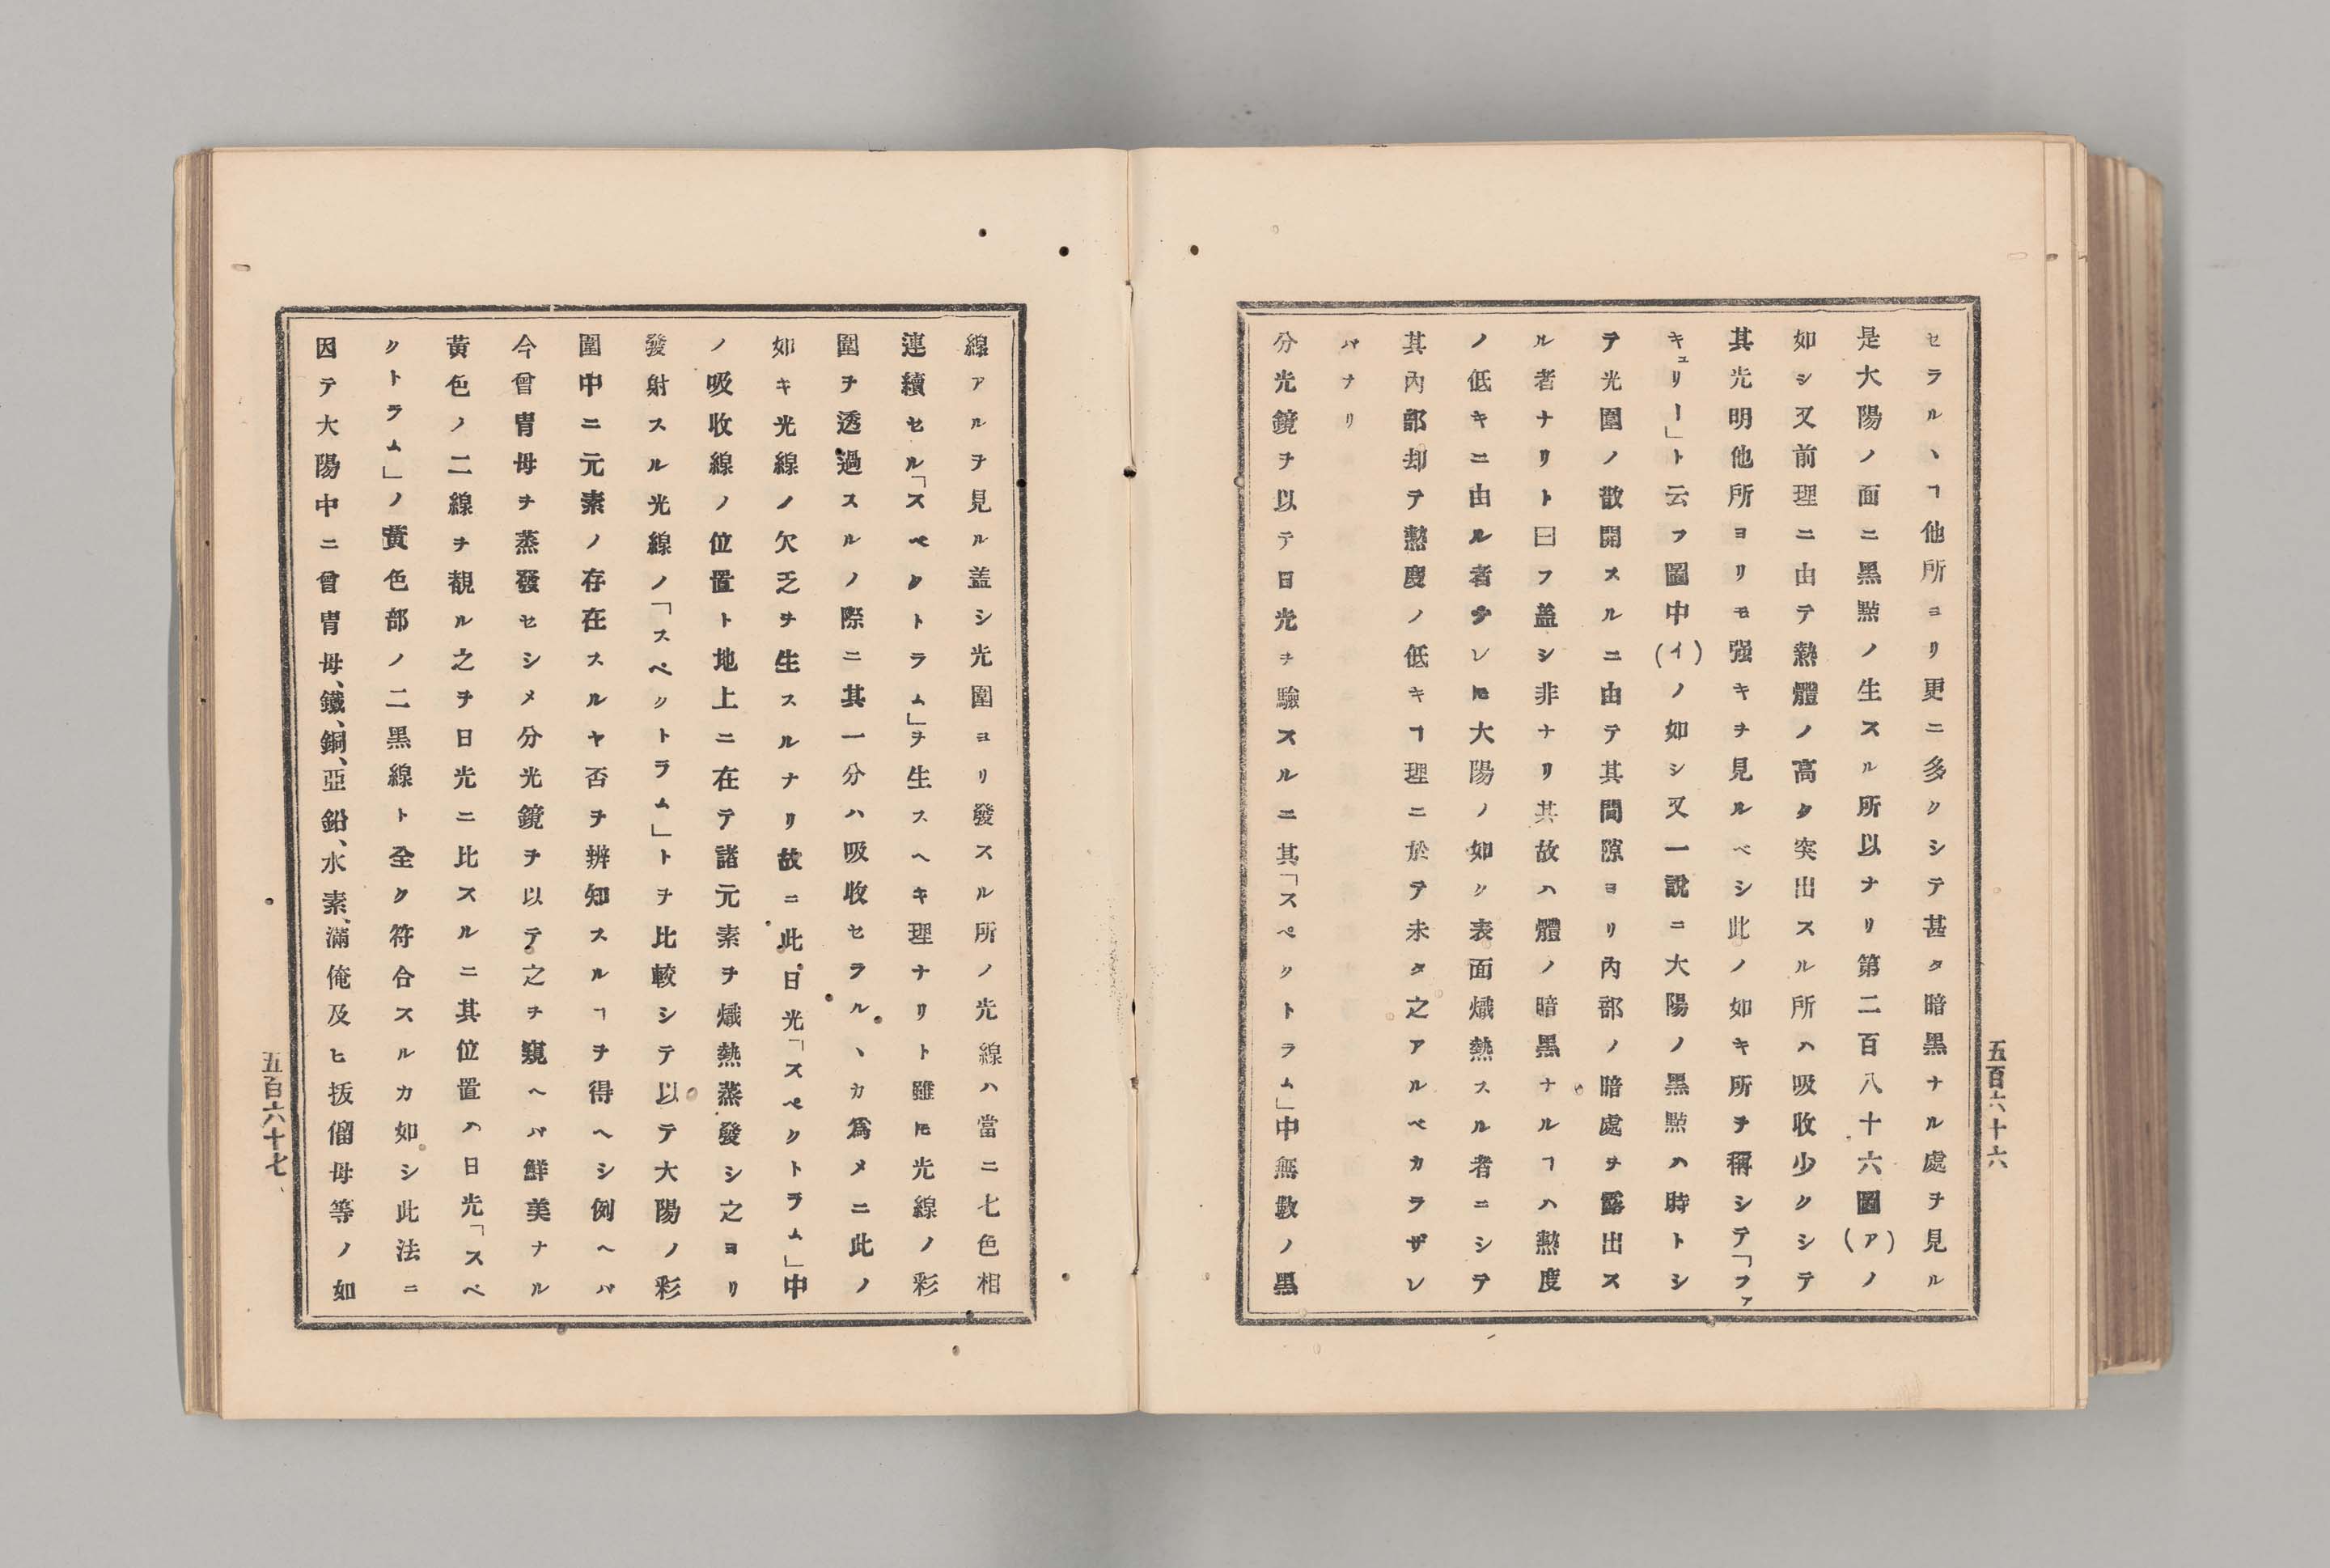 五百六十六
セラルヽヿ他所ヨリ更ニ多クシテ甚タ暗黒ナル處ヲ見ル
是大陽ノ面ニ黒㸃ノ生スル所以ナリ第二百八十六圖(ア)ノ
如シ又前理ニ由テ熱體ノ高ク突出スル所ハ吸收少クシテ
其光明他所ヨリモ强キヲ見ルベシ此ノ如キ所ヲ稱シテ「ファ
キュリー」ト云フ圖中(イ)ノ如シ又一說ニ大陽ノ黒㸃ハ時トシ
テ光圍ノ散開スルニ由テ其間隙ヨリ內部ノ暗處ヲ露出ス
ル者ナリト曰フ盖シ非ナリ其故ハ體ノ暗黒ナルヿハ熱度
ノ低キニ由ル者ナレ𪜈大陽ノ如ク表面熾熱スル者ニシテ
其內部却テ熱度ノ低キヿ理ニ於テ未タ之アルベカラザレ
バナリ
分光鏡ヲ以テ日光ヲ驗スルニ其「スペクトラム」中無數ノ黒
線アルヲ見ル盖シ光圍ヨリ發スル所ノ光線ハ當ニ七色相
連續セル「スペクトラム」ヲ生スヘキ理ナリト雖𪜈光線ノ彩
圍ヲ透過スルノ際ニ其一分ハ吸收セラルヽカ爲メニ此ノ
如キ光線ノ欠乏ヲ生スルナリ故ニ此日光「スペクトラム」中
ノ吸收線ノ位置ト地上ニ在テ諸元素ヲ熾熱蒸發シ之ヨリ
發射スル光線ノ「スペクトラム」トヲ比較シテ以テ大陽ノ彩
圍中ニ元素ノ存在スルヤ否ヲ辨知スルヿヲ得ヘシ例ヘバ
今曾冑母ヲ蒸發セシメ分光鏡ヲ以テ之ヲ窺ヘバ鮮美ナル
黃色ノ二線ヲ覩ル之ヲ日光ニ比スルニ其位置ハ日光「スペ
クトラム」ノ黃色部ノ二黒線ト全ク符合スルカ如シ此法ニ
因テ大陽中ニ曾冑母、鐵、銅、亞鉛、水素、滿俺及ヒ抜僧母等ノ如
五百六十七